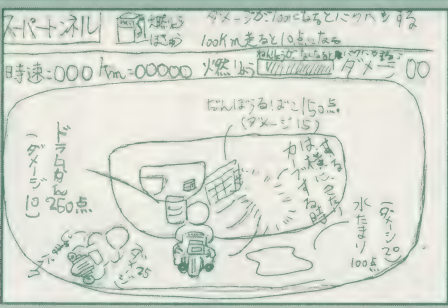 スーパートンネル
燃りょう
ほきゅう
ダメージが100になるとバクハツする
100Km走ると10点になる
時速=000 Km=00000 燃りょう ダメージ 00
だんぼうるばこ150点
(ダメージ15)
ドラムかん250点
(ダメージ10)
カーブする時
は横に
水たまり
100点
(ダメージ20)
ダメージ25